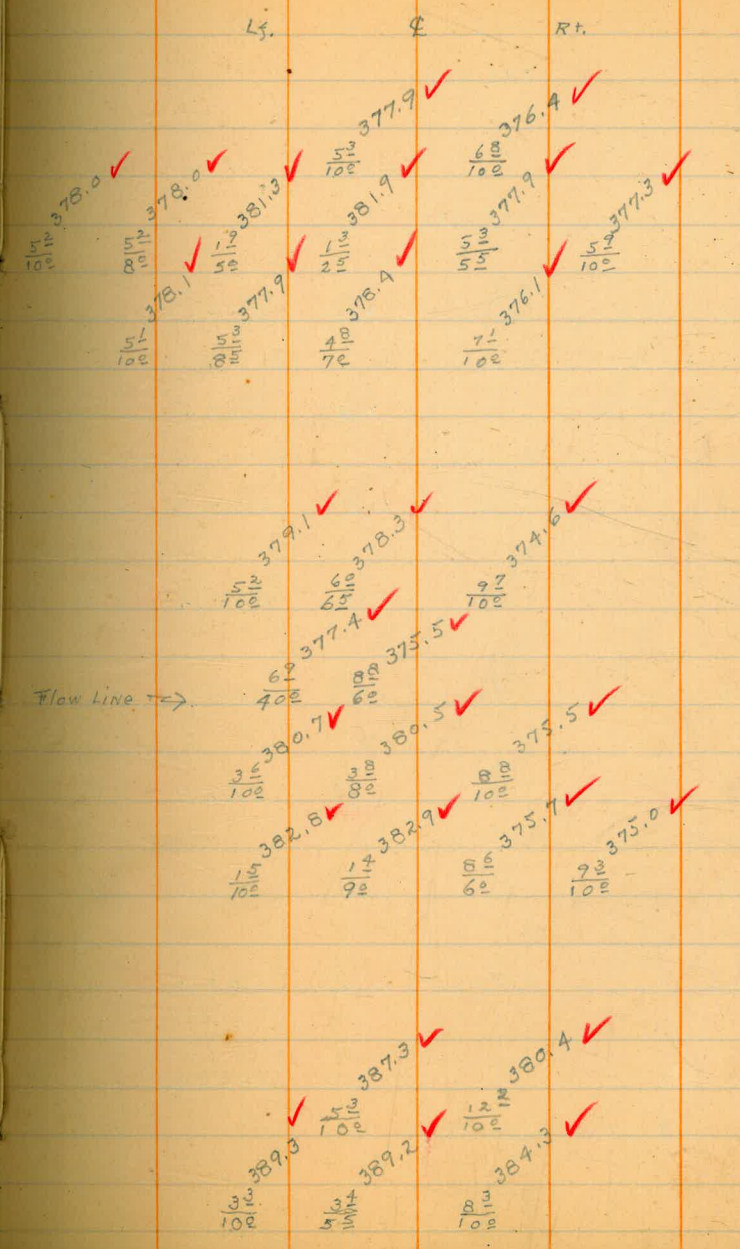 Lf. ℄ Rt.
377.9 376.4
5.3/10.0 6.8/10.0
378.0 378.0 381.3 381.9 377.9 377.3
5.2/10.0 5.2/8.0 1.3/2.5 5.3/5.5
378.1 377.9 378.4 376.1
5.1/10.0 5.3/8.5 4.8/7.0 7.1/10.0
379.1 378.3 374.6
5.2/10.0 6.0/6.5 9.7/10.0
377.4 375.5
Flow Line → 6.9/40.0 8.8/6.0
380.7 380.5 375.5
3.6/10.0 3.8/8.0 8.8/10.0
382.8 382.9 375.7 375.0
1.5/10.0 1.4/9.0 8.6/6.0 9.3/10.0
387.3 380.4
5.3/10.0 12.2/10.0
389.3 389.2 384.3
3.3/10.0 3.4/5.5 8.3/10.0